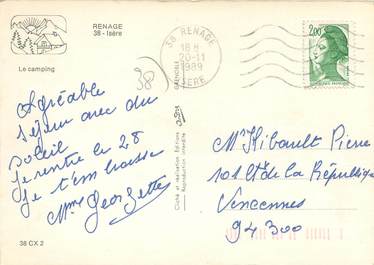 RENAGE
38 - Isère
Le camping
38
Agréable
séjour avec du
soleil
je rentre le 28
je t'embrasse
Mme Georgette
38 CX 2
Cliché et réalisation Editions
Reproduction interdite
GRENOBLE
38 RENAGE
18 H
20-11
1989
ISERE
2,00
Mr Thibault Pierre
101 Ct de la République
Vincennes
94300